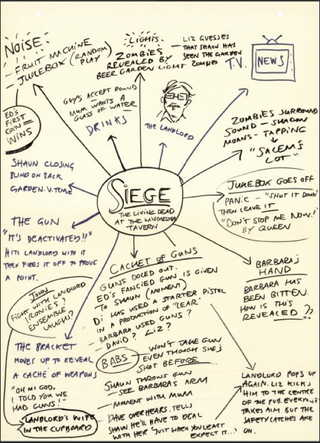 NOISE-
- FRUIT MACHINE
JUKEBOX (RANDOM)
PLAY
ED'S
FIRST
COIN =
WINS
LIGHTS.
ZOMBIES
REVEALED BY
BEER GARDEN LIGHT
- LIZ GUESSES
THAT SHAUN HAS
SEEN THE GARDEN
ZOMBIES
T.V.
NEWS
GUYS ACCEPT ROUND
MUM WANTS A
GLASS OF WATER
DRINKS
THE LANDLORD
ZOMBIES SURROUND
SOUND - SHADOW
MOVES - TAPPING
"SALEM'S
LOT"
SHAUN CLOSING
BLIND ON BACK
GARDEN
SIEGE
THE LIVING DEAD
AT THE WINCHESTER
TAVERN
JUKEBOX GOES OFF
PANIC - "SHUT IT DOWN"
THEN LEAVE IT
"DON'T STOP ME NOW!"
BY QUEEN
THE GUN
"IT'S DEACTIVATED!!"
HIT LANDLORD WITH IT
THEN FIRES IT OFF TO PROVE
A POINT.
CACHET OF GUNS
GUNS DOLED OUT.
ED'S FANCIED GUN IS GIVEN
TO SHAUN (MOMENT)
DJ HAS USED A STARTER PISTOL
IN A PRODUCTION OF "LEAR."
BARBARA USED GUNS?
- DAVID? LIZ?
BARBARA'S
HAND
BARBARA HAS
BEEN BITTEN.
HOW IS THIS
REVEALED?
JOHN
FIGHT WITH LANDLORD
IRONIES?
ENSEMBLE
LAUGHS?
THE BRACKET
MOVES UP TO REVEAL
A CACHE OF WEAPONS
"OH MI GOD,
I TOLD YOU WE
HAD GUNS!"
LANDLORD'S WIFE
IN THE CUPBOARD
BABS
WON'T TAKE GUN
EVEN THOUGH SHE'S
SHOT BEFORE
SHAUN THROWS GUN
SEE BARBARA'S ARM
MOMENT WITH MUM
DAVE OVERHEARS, TELLS
SHAUN HE'LL HAVE TO DEAL
WITH HER "JUST WHEN YOU LEAST
EXPECT IT... OH.
LANDLORD POPS UP
AGAIN. LIZ KICKS
HIM TO THE CENTRE
OF THE PUB
TAKES AIM BUT THE
SAFETY CATCHES ARE
ON.